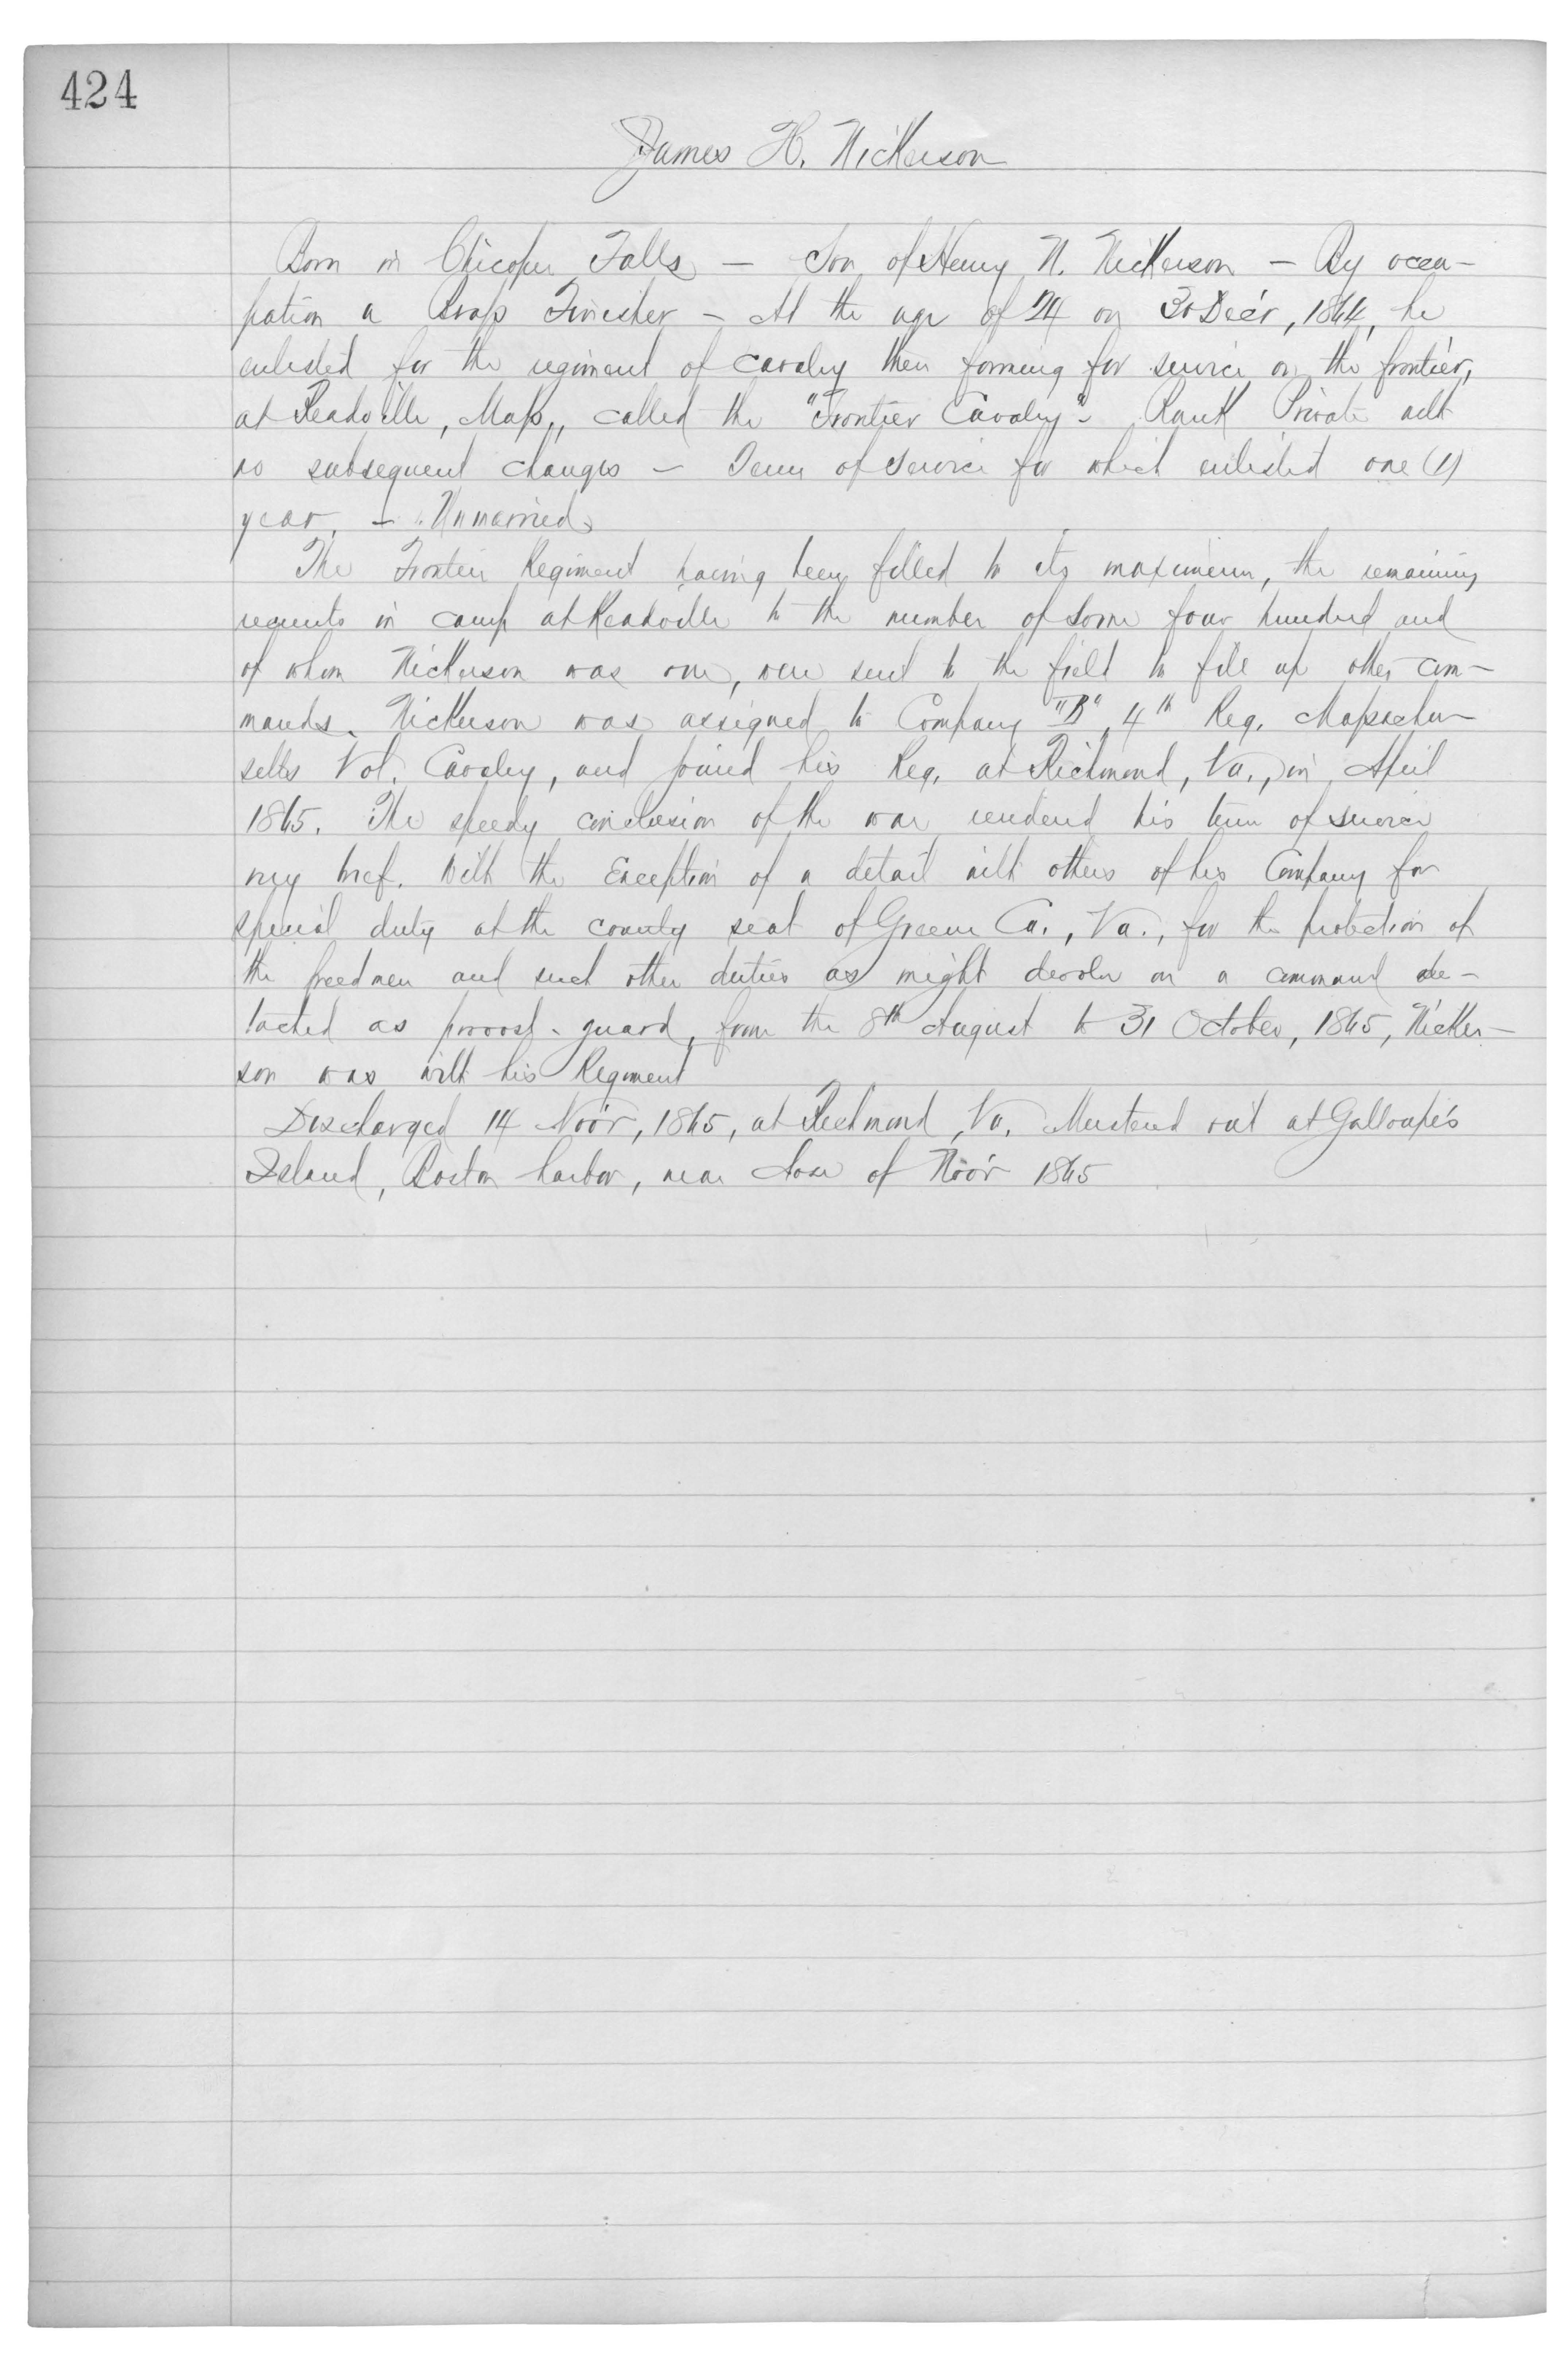 424
James H. Nickerson
Born in Chicopee Falls — Son of Henry N. Nickerson — By occu-
pation a Brass Finisher — At the age of 24 on 30 Dec'r, 1864, he
enlisted for the regiment of cavalry then forming for service on the frontier,
at Readville, Mass., called the "Frontier Cavalry" - Rank Private with
no subsequent changes — Term of service for which enlisted one (1)
year. — Unmarried.
The Frontier Regiment having been filled to its maximum, the remaining
recruits in camp at Readville to the number of some four hundred and
of whom Nickerson was one, were sent to the field to fill up other com-
mands. Nickerson was assigned to Company "B" 4th Reg. Massachu-
setts Vol. Cavalry, and joined his Reg. at Richmond, Va., in April
1865. The speedy conclusion of the war rendered his term of service
very brief. With the exception of a detail with others of his Company for
special duty at the county seat of Greene Co., Va., for the protection of
the freedmen and such other duties as might devolve on a command de-
tached as provost-guard, from the 8th August to 31 October, 1865, Nicker-
son was with his Regiment
Discharged 14 Nov'r, 1865, at Richmond, Va. Mustered out at Galloupe's
Island, Boston harbor, near close of Nov'r 1865